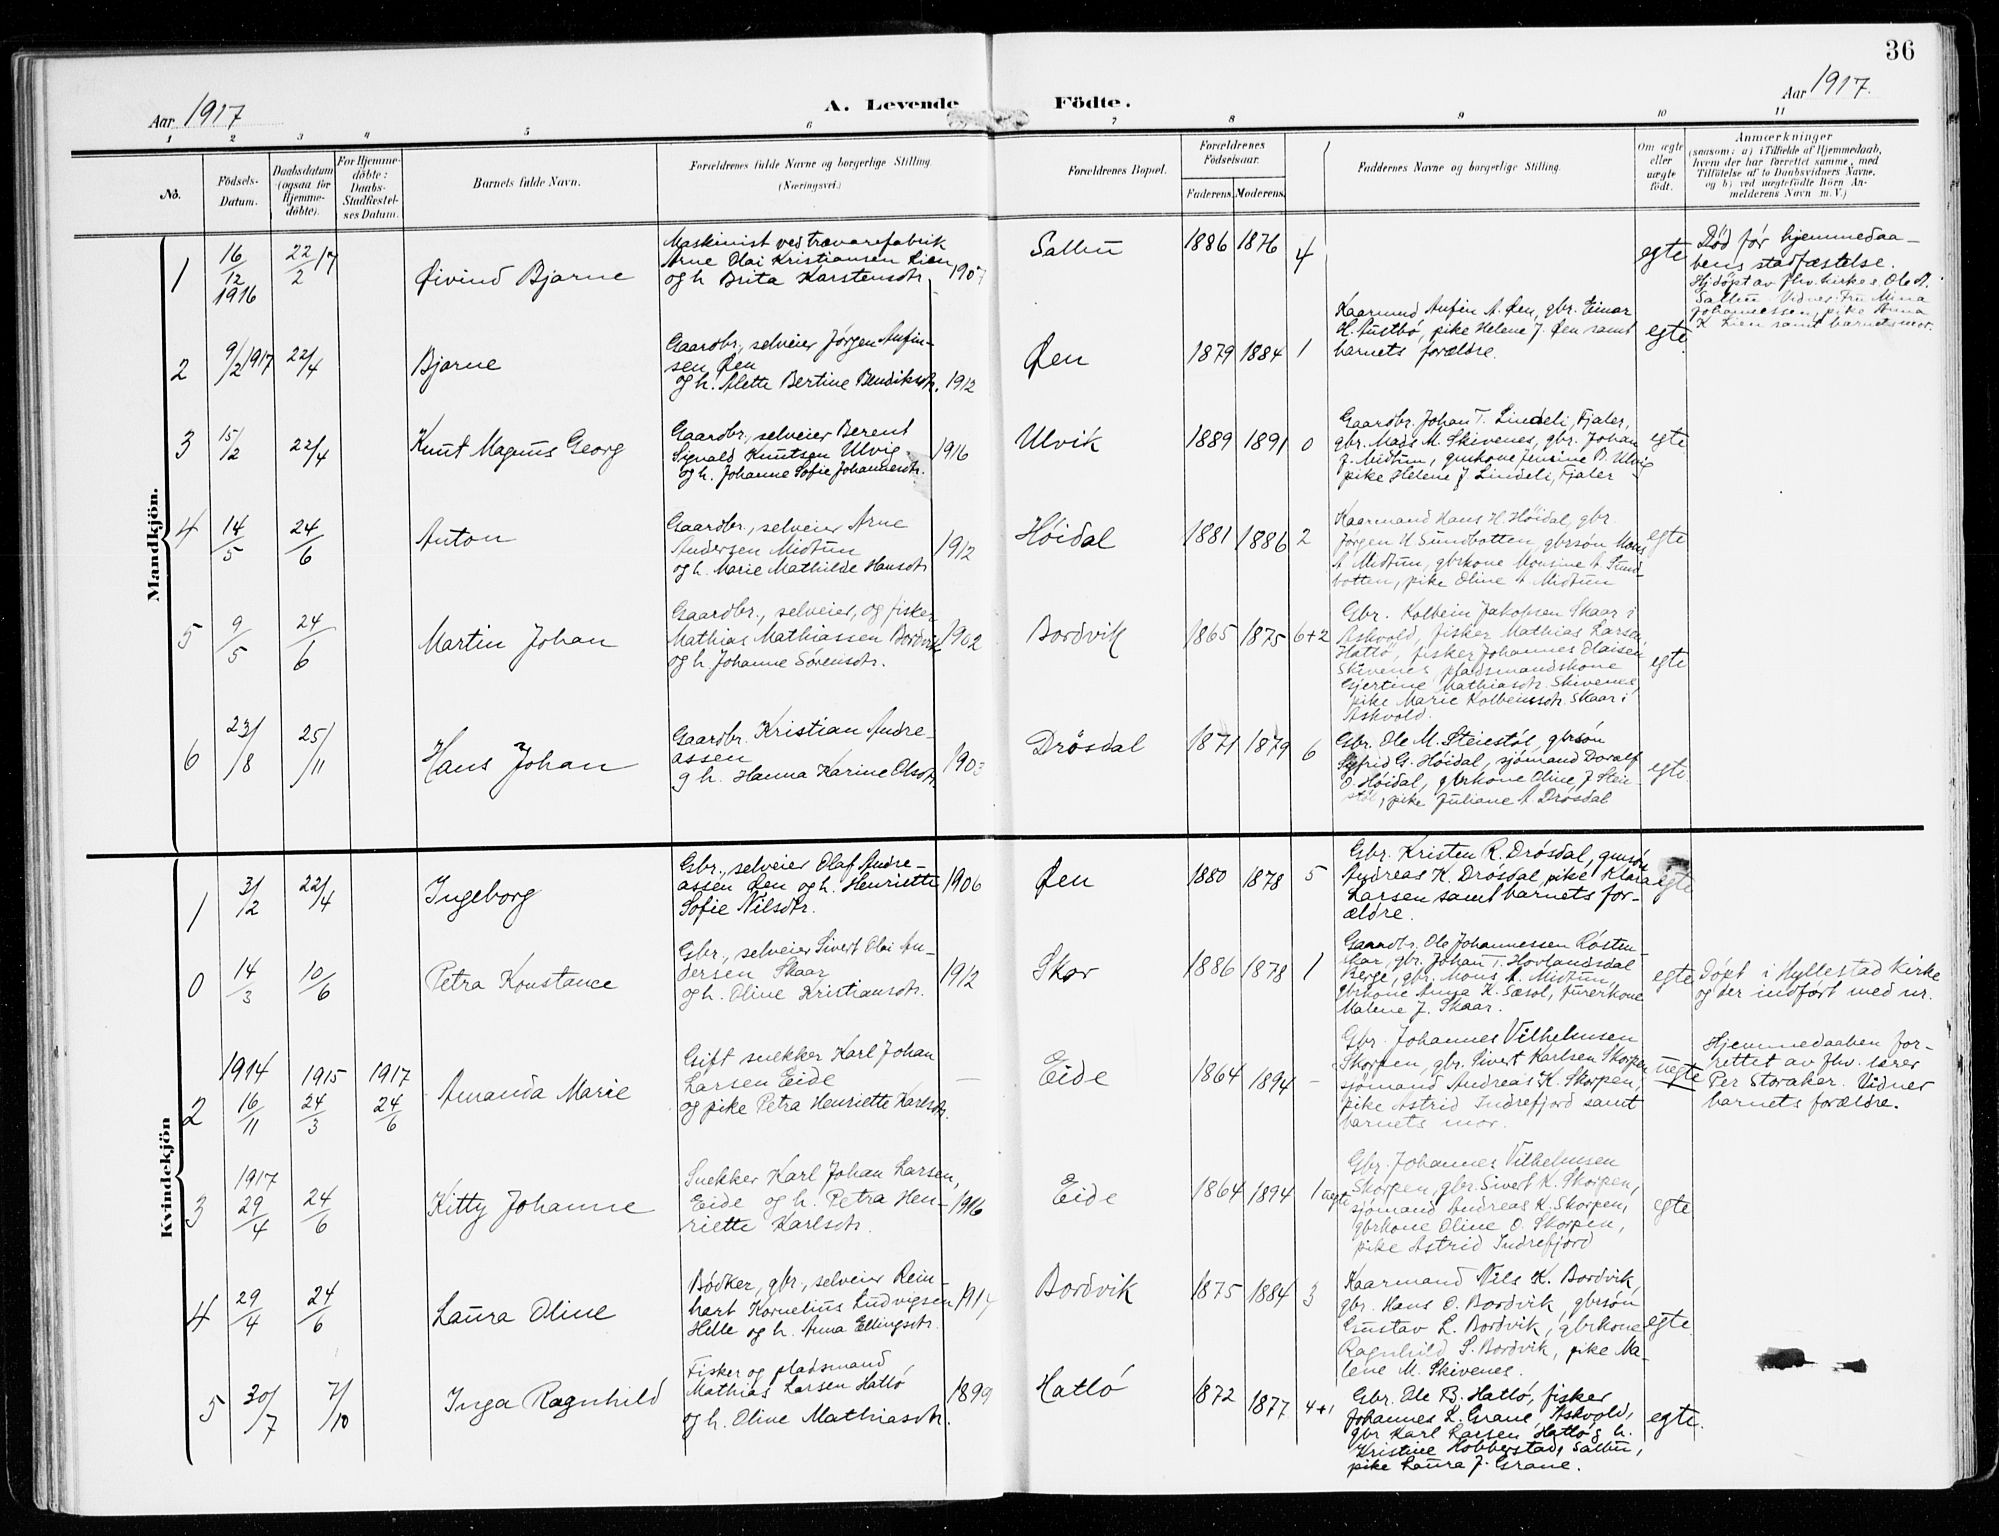 36
Aar 1917
A. Levende Födte.
Aar 1917.
1 2 3 4 5 6 7 8 9 10 11
No.
Födsels-
Datum.
Daabsdatum
(ogsaa for
Hjemme-
döbte).
For Hjemme-
döbte:
Daabs-
Stadfæstel-
ses Datum.
Barnets fulde Navn.
Forældrenes fulde Navne og borgerlige Stilling.
(Næringsvei.)
Forældrenes Bopæl.
Forældrenes
Födselsaar.
Faderens. Moderens.
Faddernes Navne og borgerlige Stilling.
Om ægte
eller
uægte
födt.
Anmærkninger
(saasom: a) i Tilfælde af Hjemmedaab,
hvem der har forrettet samme, med
Tilföielse af to Daabsvidners Navne,
og b) ved uægtefödte Börn An-
melderens Navn m. V.)
Mandkjön.
1
16/12
1916
22/2 17
Øivind Bjarne
Maskinist ved trævarefabrik
Arne Olai Kristiansen Lien
og h. Brita Karstensdtr.
1907
Salbu
1886 1876 4
egte
Død før hjemmedaa-
bens stadfæstelse.
Hj.døpt av fhv. kirkes. Ole A.
Salbu. Vidner: Fru Mina
Johannessen, pike Anna
K. Lien samt barnets mor.
2
9/2 1917
22/4
Bjarne
Gaardbr., selveier Jørgen Anfin-
sen Øen
og h. Alette Bertine Bendiksdtr.
1912
Øen
1879 1884 1
Kaarmand Anfin A. Øen, gbr. Einar
H. Austbø, pike Helene J. Øen samt
barnets forældre.
egte
3
15/2
22/4
Knut Magnus Georg
Gaardbr., selveier Berent
Sigvald Knutsen Ulvig
og h. Johanne Sofie Johannesdtr.
1916
Ulvik
1889 1891 0
Gaardbr. Johan T. Lindeli, Fjaler,
gbr. Mads M. Skivenes, gbr. Johan
J. Midtun, gmkone Jensine B. Ulvig
pike Helene J. Lindeli, Fjaler
egte
4
14/5
24/6
Anton
Gaardbr., selveier Arne
Andersen Midtun
og h. Marie Mathilde Hansdtr.
1912
Høidal
1881 1886 2
Kaarmand Hans H. Høidal, gbr.
Jørgen H. Sundbotten gbrsøn Mons
A. Midtun, gbrkone Monsine A. Sund-
botten, pike Oline A. Midtun
egte
5
9/5
24/6
Martin Johan
Gaardbr., selveier, og fisker
Mathias Mathiassen Bordvik
og h. Johanne Sørensdtr.
1902
Bordvik
1865 1875 6+2
Gbr. Kolbein Jakopsen Skaar i
Askvold, fisker Mathias Larsen
Hatlø, fisker Johannes Claisen
Skivenes, pladsmandskone
Gjertine Mathiasdtr. Skivenes,
pike Marie Kolbeinsdtr. Skaar i
Askvold.
egte
6
23/8
25/11
Hans Johan
Gaardbr. Kristian Andre-
assen
g h. Hanna Karine Olsdtr.
1903
Drøsdal
1871 1879 6
Gbr. Ole M. Steiestøl, gbrsøn
Sigfrid G. Høidal, sjømand Doralf
O. Høidal, gbrkone Oline J. Stei-
støl, pike Juliane A. Drøsdal
egte
Kvindekjön
1
3/2
22/4
Ingeborg
Gbr., selveier Olaf Andre-
assen Øen og h. Henriette
Sofie Nilsdtr.
1906
Øen
1880 1878 5
Gbr. Kristen R. Drøsdal, gmsøn
Andreas K. Drøsdal, pike Klara
Larsen samt barnets for-
ældre.
egte
0
14/3
10/6
Petra Konstance
Gbr., selveier Sivert Olai An-
dersen Skaar
og h. Oline Kristiansdtr.
1912
Skor
1886 1878 1
Gaardbr. Ole Johannessen Røsten-
skar, gbr. Johan T. Hovlandsdal
Berge, gbr. Mons A. Midtun,
gbrkone Anna K. Sæsol, turerkone
Malene J. Skaar.
egte
Døpt i Hyllestad Kirke
og der indført med nr.
2
1914
16/11
1915
24/3
1917
24/6
Amanda Marie
Gift snekker Karl Johan
Larsen Eide
og pike Petra Henriette Karlsdtr.
—
Eide
1864 1894 –
Gbr. Johannes Vilhelmsen
Skorpen, gbr. Sivert Karlsen Skorpen
sjømand Andreas K. Skorpen,
pike Astrid Indrefjord samt
barnets mor.
uegte
Hjemmedaaben for-
rettet av fhv. lærer
Per Storaker. Vidner
barnets forældre.
3
1917
29/4
24/6
Kitty Johanne
Snekker Karl Johan Larsen,
Eide og h. Petra Hen-
riette Karlsdtr.
1916
Eide
1864 1894 1 uegte
Gbr. Johannes Vilhelmsen
Skorpen, gbr. Sivert K. Skorpen,
sjømand Andreas K. Skorpen,
gbrkone Oline O. Skorpen,
pike Astrid Indrefjord
egte
4
29/4
24/6
Laura Oline
Bødker, gbr., selveier Rein-
hart Kornelius Ludvigsen
Hille og h. Anna Ellingsdtr.
1914
Bordvik
1875 1884 3
Kaarmand Nils K. Bordvik,
gbr. Hans O. Bordvik, gbrsøn
Gustav L. Bordvik, gbrkone
Ragnhild S. Bordvik, pike Ma-
lene M. Skivenes.
egte
5
30/7
7/10
Inga Ragnhild
Fisker og pladsmand
Mathias Larsen Hatlø
og h. Olive Mathiasdtr.
1899
Hatlø
1872 1877 4+1
Gbr. Ole B. Hatlø, fisker
Johannes L. Grane, Askvold,
gbr. Karl Larsen Hatlø g h.
Kristine Hobberstad, Salbu,
pike Laura J. Grane.
egte.